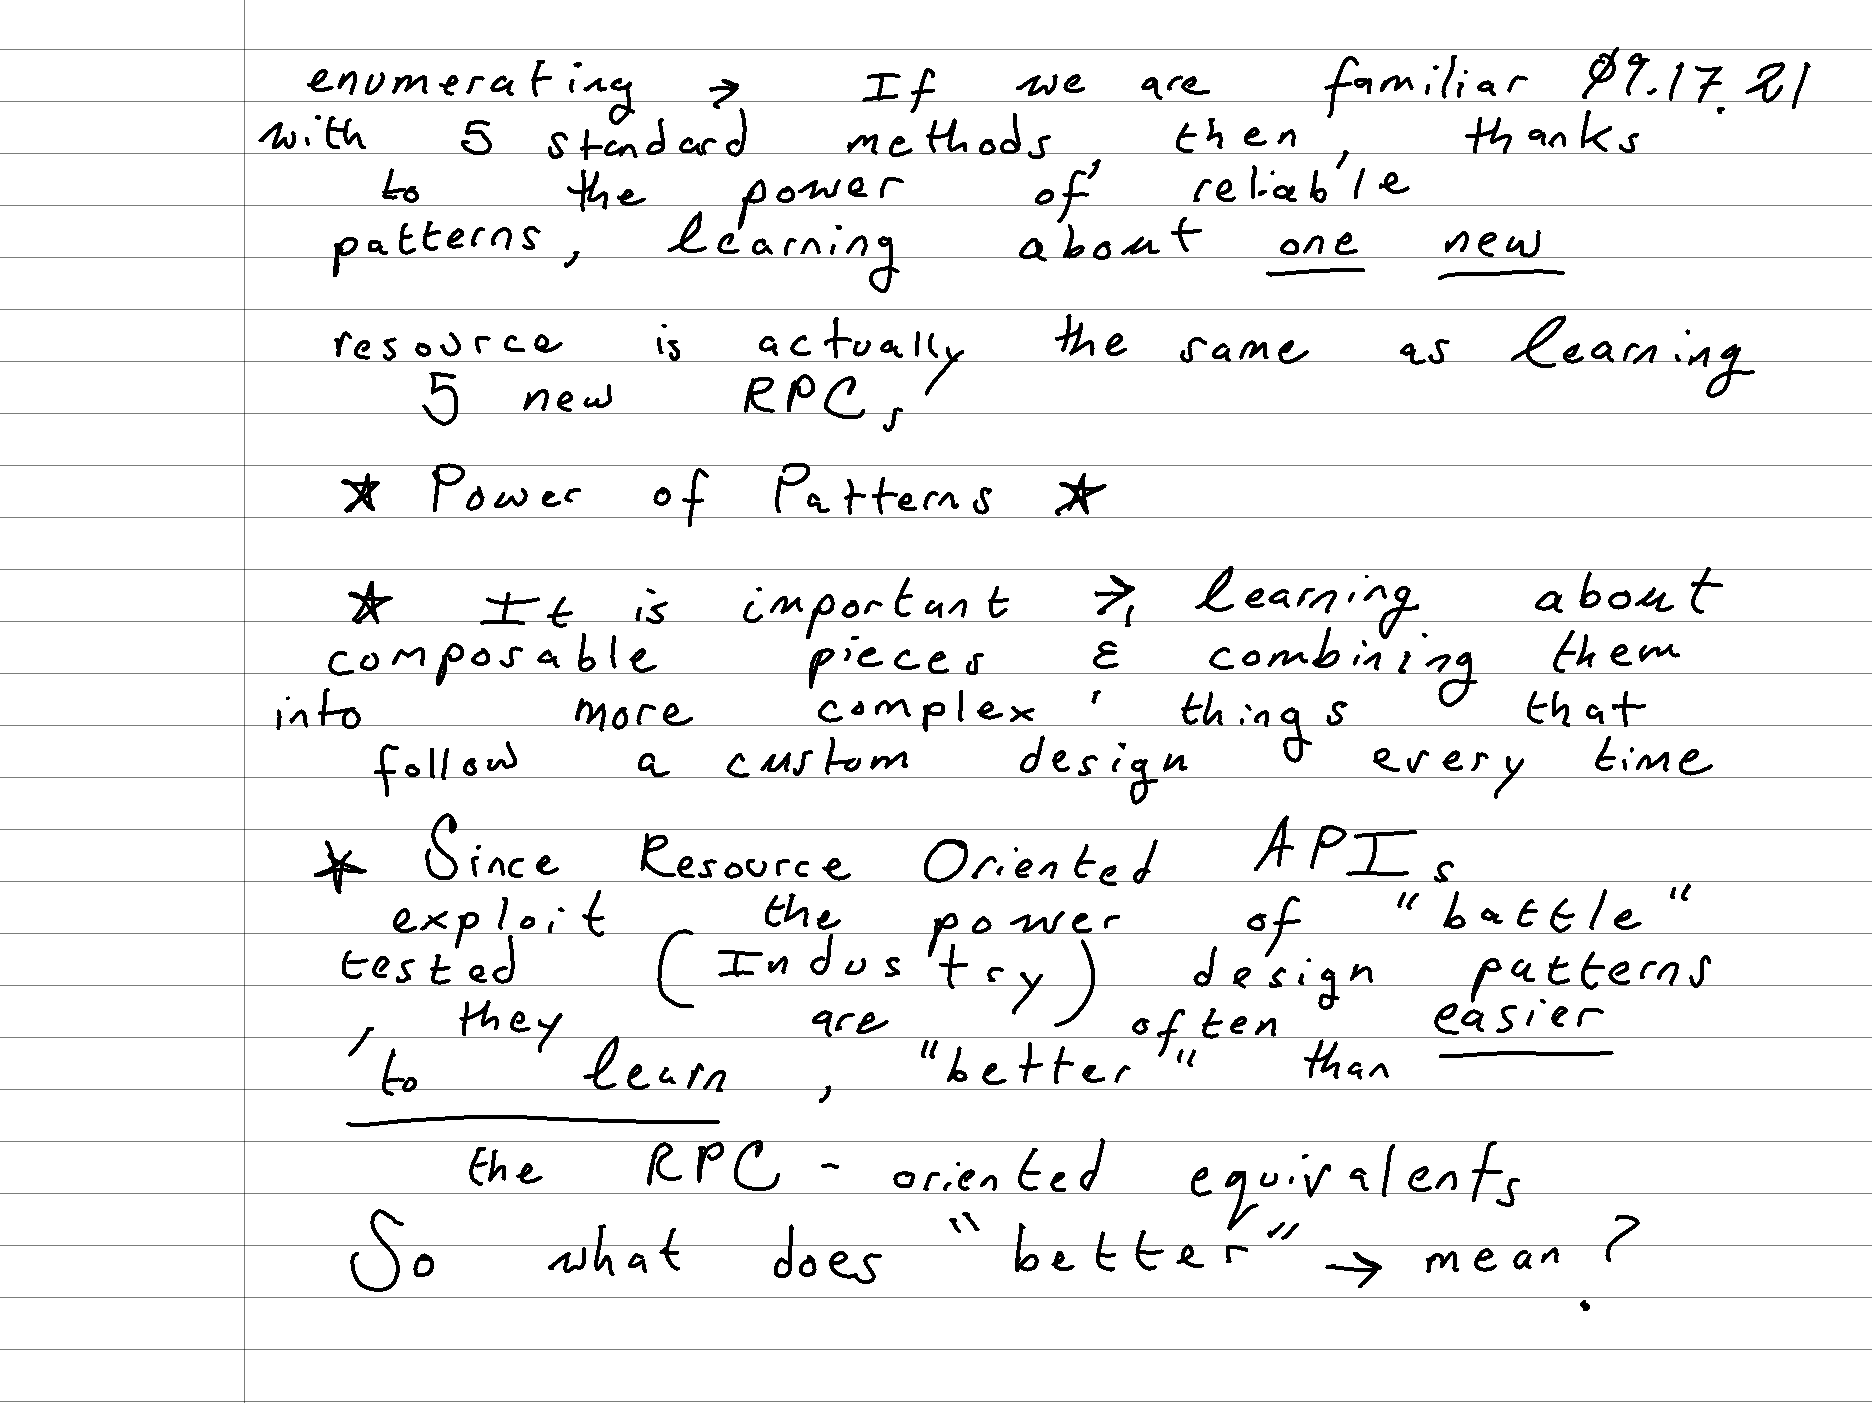 enumerating → If we are familiar 09.17.21
with 5 standard methods, then, thanks
to the power of reliable
patterns, learning about one new
resource is actually the same as learning
5 new RPCs
★ Power of Patterns ★
★ It is important → learning about
composable pieces & combining them
into more complex things that
follow a custom design every time
★ Since Resource Oriented APIs
exploit the power of "battle"
tested (Industry) design patterns
, they are often easier
to learn, "better" than
the RPC-oriented equivalents
So what does "better" → mean?